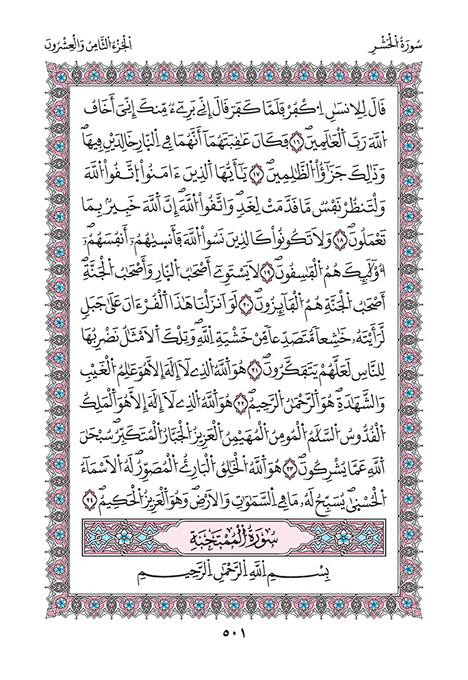 سُورَةُ الْحَشْرِ
الْجُزْءُ الثَّامِنُ وَالْعِشْرُونَ
قَالَ لِلِانسَٰنِ اِ۟كْفُرْ فَلَمَّا كَفَرَ قَالَ إِنِّي بَرِيٓءٌ مِّنكَ إِنِّيَ أَخَافُ
اُ۬للَّهَ رَبَّ اَ۬لْعَٰلَمِينَۖ ١٦ فَكَانَ عَٰقِبَتَهُمَآ أَنَّهُمَا فِي اِ۬لنّ۪ارِ خَٰلِدَيْنِ فِيهَاۖ
وَذَٰلِكَ جَزَٰٓؤُاْ اُ۬لظَّٰلِمِينَۖ ١٧ يَٰٓأَيُّهَا اَ۬لذِينَ ءَامَنُواْ اُ۪تَّقُواْ اُ۬للَّهَ
وَلْتَنظُرْ نَفْسٞ مَّا قَدَّمَتْ لِغَدٖۖ وَاتَّقُواْ اُ۬للَّهَۖ إِنَّ اَ۬للَّهَ خَبِيرُۢ بِمَا
تَعْمَلُونَۖ ١٨ وَلَا تَكُونُواْ كَالذِينَ نَسُواْ اُ۬للَّهَ فَأَنس۪يٰهُمُۥٓ أَنفُسَهُمُۥٓۖ
أُوْلَٰٓئِكَ هُمُ اُ۬لْفَٰسِقُونَۖ ١٩ لَا يَسْتَوِےٓ أَصْحَٰبُ اُ۬لنّ۪ارِ وَأَصْحَٰبُ اُ۬لْجَنَّةِۖ
أَصْحَٰبُ اُ۬لْجَنَّةِ هُمُ اُ۬لْفَآئِزُونَۖ ٢٠ لَوَ اَنزَلْنَا هَٰذَا اَ۬لْقُرْءَانَ عَلَىٰ جَبَلٖ
لَّرَأَيْتَهُۥ خَٰشِعاٗ مُّتَصَدِّعاٗ مِّنْ خَشْيَةِ اِ۬للَّهِۖ وَتِلْكَ اَ۬لَامْثَٰلُ نَضْرِبُهَا
لِلنَّاسِ لَعَلَّهُمْ يَتَفَكَّرُونَۖ ٢١ هُوَ اَ۬للَّهُ اُ۬لذِے لَآ إِلَٰهَ إِلَّا هُوَ عَٰلِمُ اُ۬لْغَيْبِ
وَالشَّهَٰدَةِۖ هُوَ اَ۬لرَّحْمَٰنُ اُ۬لرَّحِيمُۖ ٢٢ هُوَ اَ۬للَّهُ اُ۬لذِے لَآ إِلَٰهَ إِلَّا هُوَ اَ۬لْمَلِكُ
اُ۬لْقُدُّوسُ اُ۬لسَّلَٰمُ اُ۬لْمُومِنُ اُ۬لْمُهَيْمِنُ اُ۬لْعَزِيزُ اُ۬لْجَبَّارُ اُ۬لْمُتَكَبِّرُۖ سُبْحَٰنَ
اَ۬للَّهِ عَمَّا يُشْرِكُونَۖ ٢٣ هُوَ اَ۬للَّهُ اُ۬لْخَٰلِقُ اُ۬لْبَارِئُ اُ۬لْمُصَوِّرُۖ لَهُ اُ۬لَاسْمَآءُ
اُ۬لْحُسْن۪يٰۖ يُسَبِّحُ لَهُۥ مَا فِي اِ۬لسَّمَٰوَٰتِ وَالَارْضِۖ وَهُوَ اَ۬لْعَزِيزُ اُ۬لْحَكِيمُۖ ٢٤
سُورَةُ الْمُمْتَحِنَةِ
بِسْمِ اِ۬للَّهِ اِ۬لرَّحْمَٰنِ اِ۬لرَّحِيمِ
٥٠١